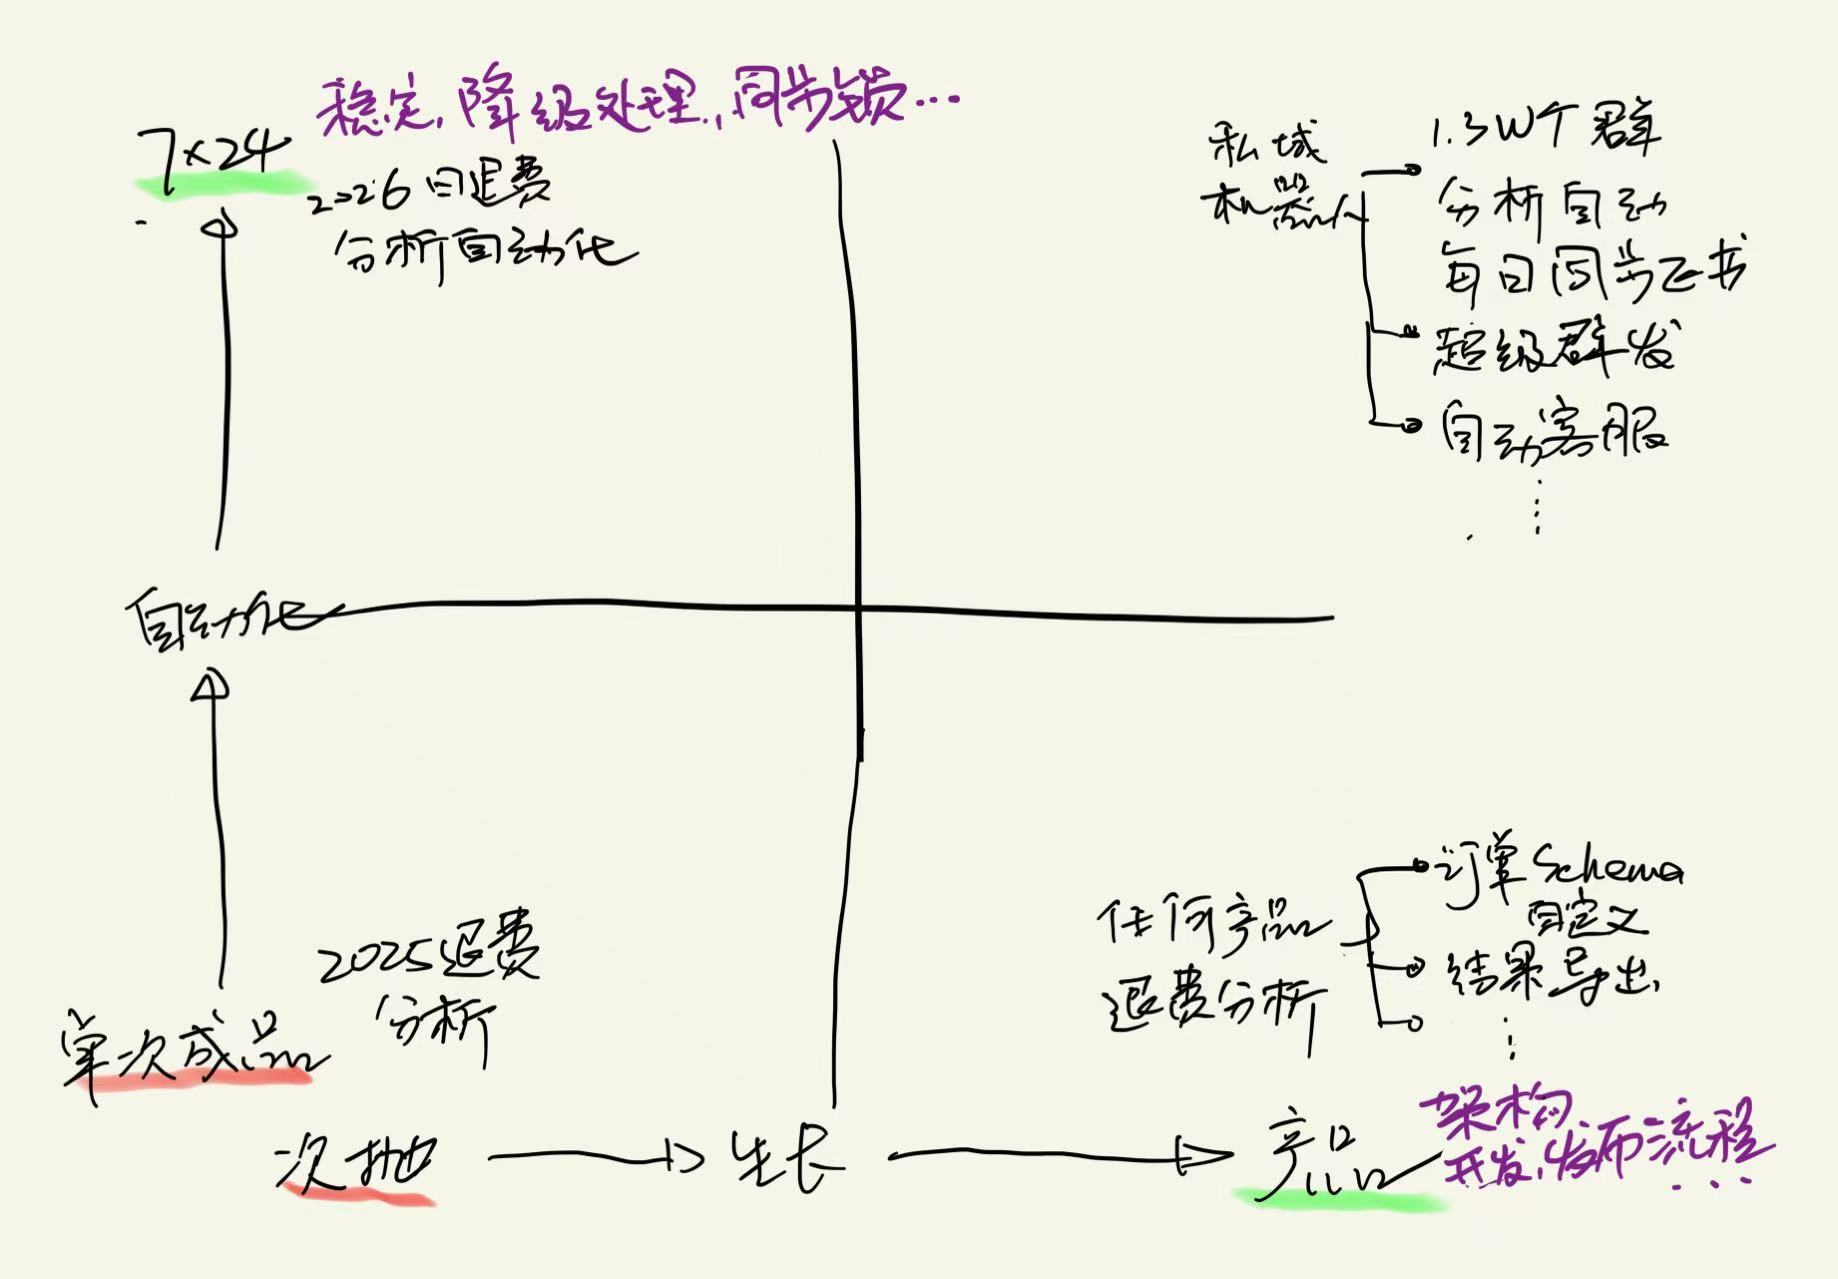 稳定,降级处理,同步锁...
7×24
2026日退费
分析自动化
私域
机器人
1.3W个群
分析自动
每日同步飞书
超级群发
自动客服
自动化
2025退费
分析
单次成品
任何产品
退费分析
订单Schema
自定义
结果导出
次抛
生长
产品
架构
开发,发布流程
...